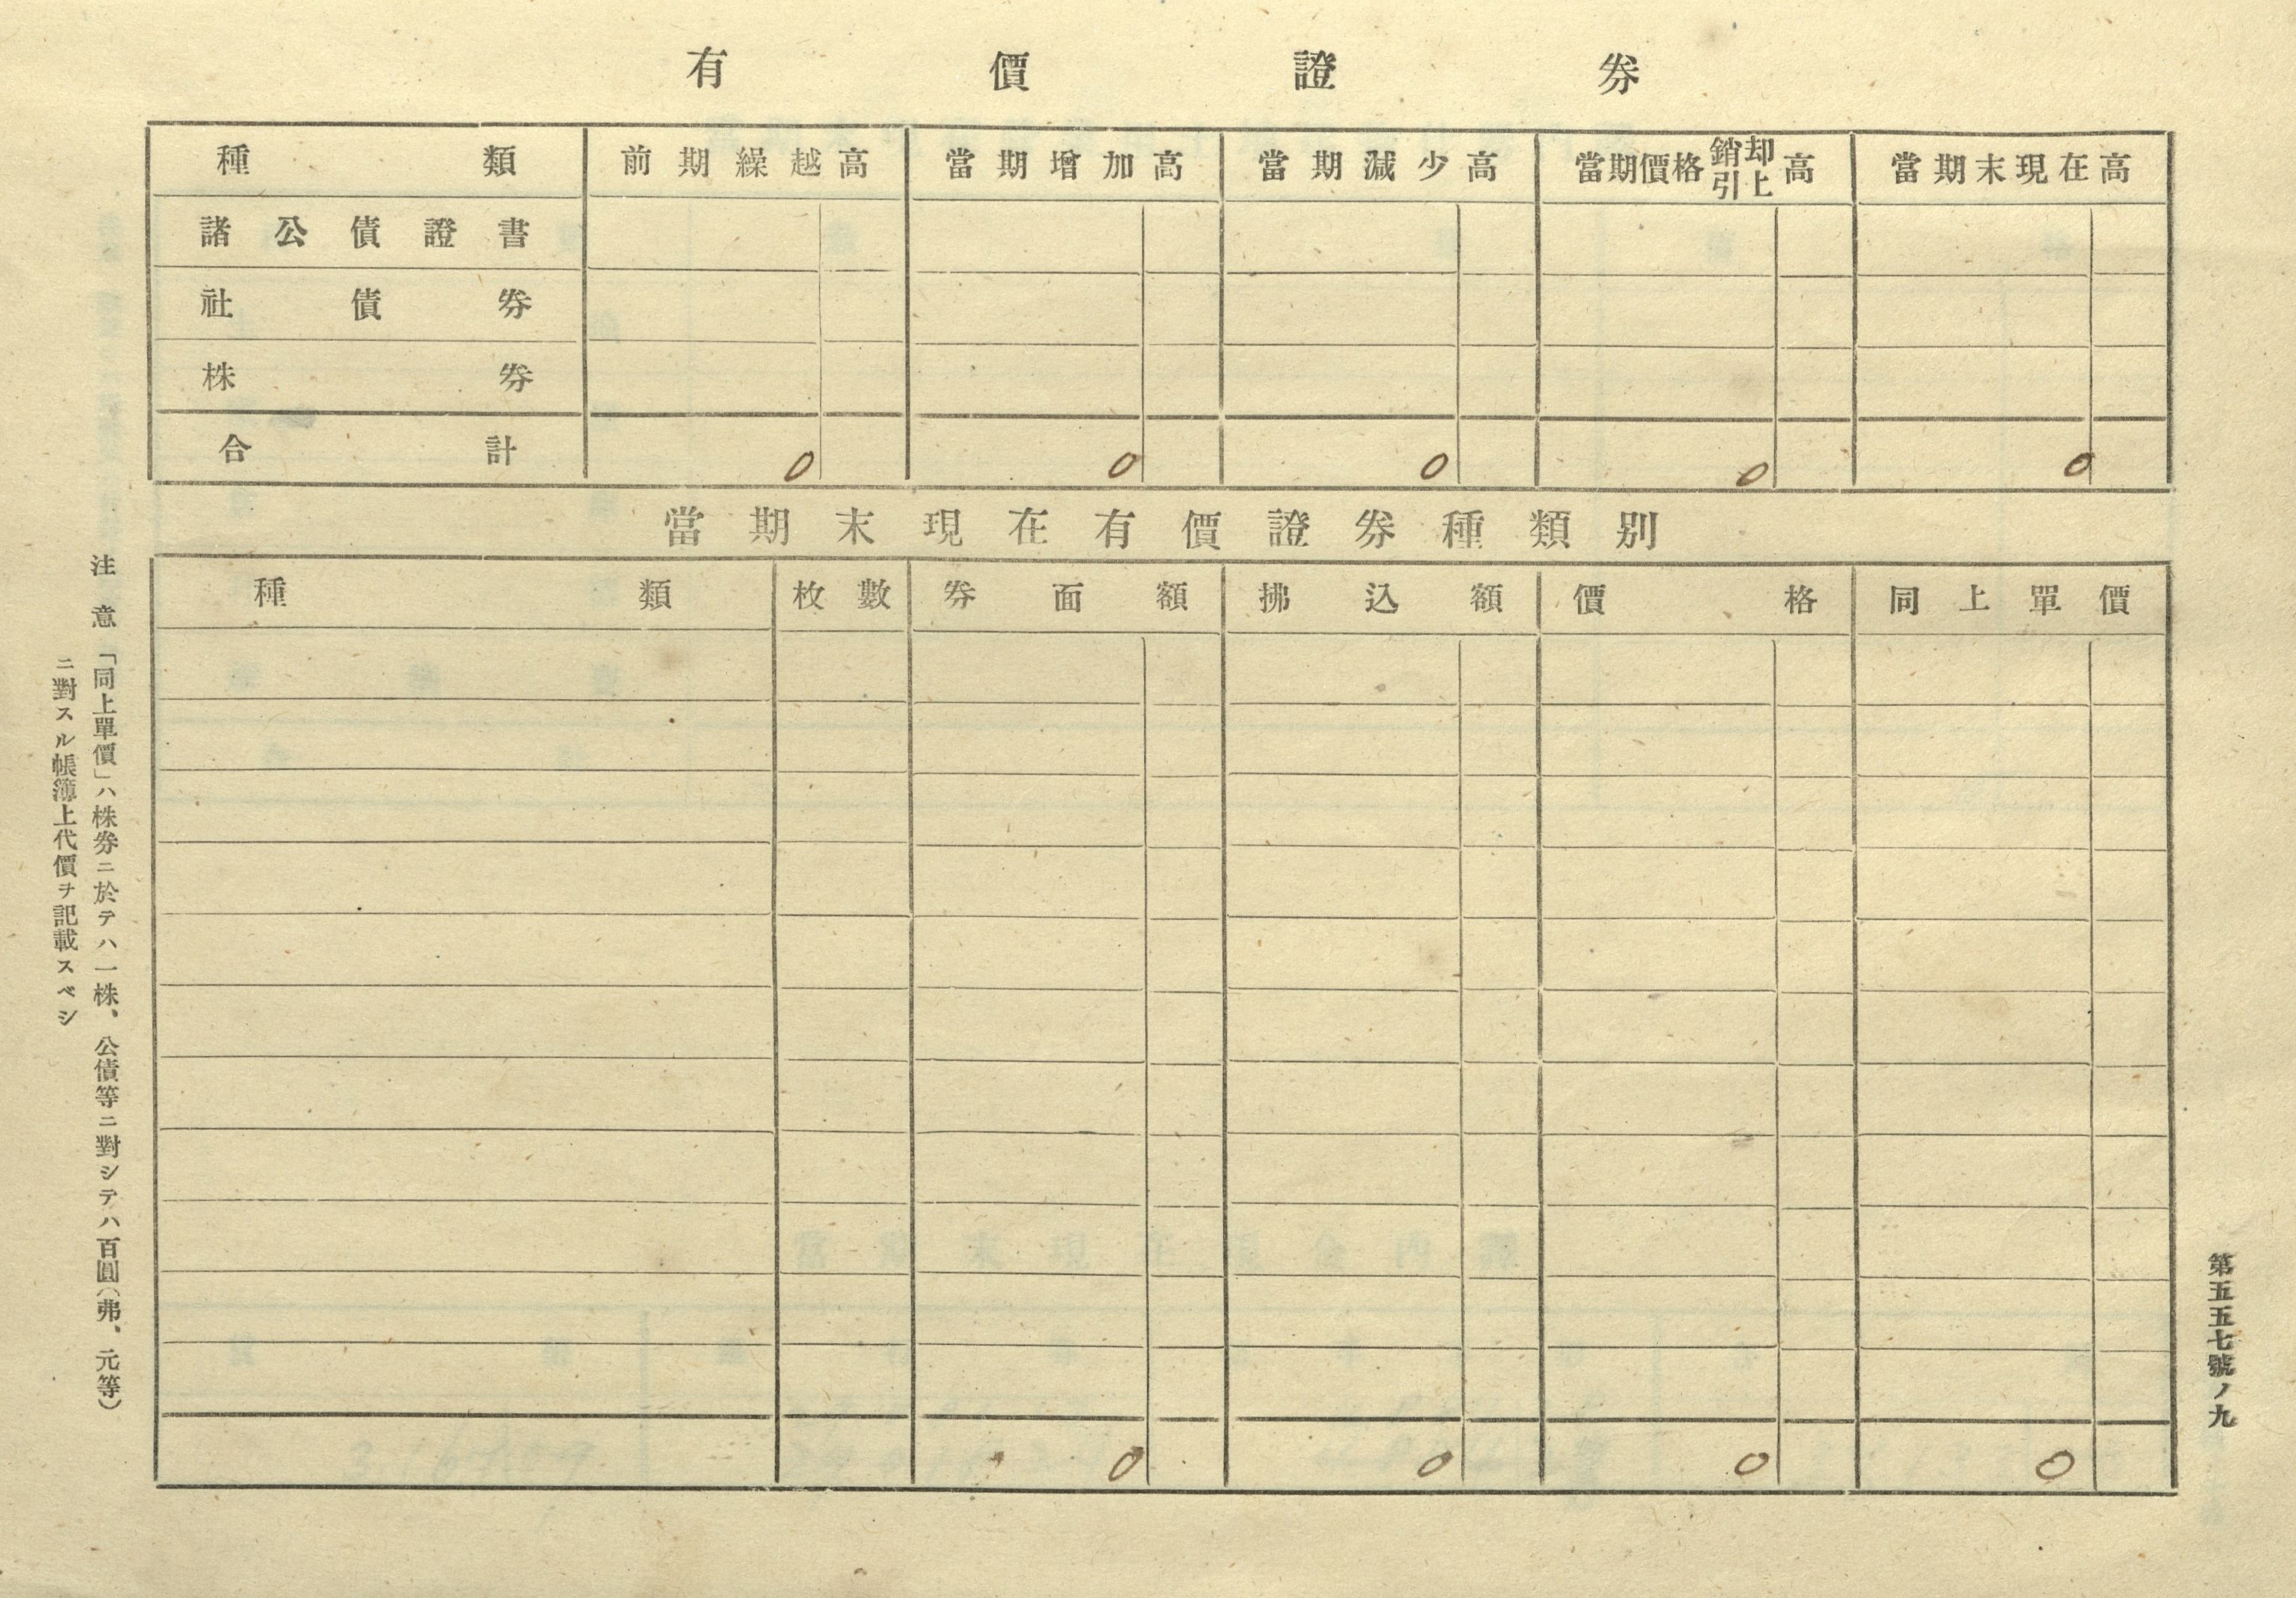 有價證券
種類 前期繰越高 當期增加高 當期減少高 當期價格銷却引上高 當期末現在高
諸公債證書
社債券
株券
合計 0 0 0 0 0
當期末現在有價證券種類別
種類 枚數 券面額 拂込額 價格 同上單價
0 0 0 0
注意 「同上單價」ハ株券ニ於テハ一株、公債等ニ對シテハ百圓(弗、元等)
ニ對スル帳簿上代價ヲ記載スベシ
第五五七號ノ九